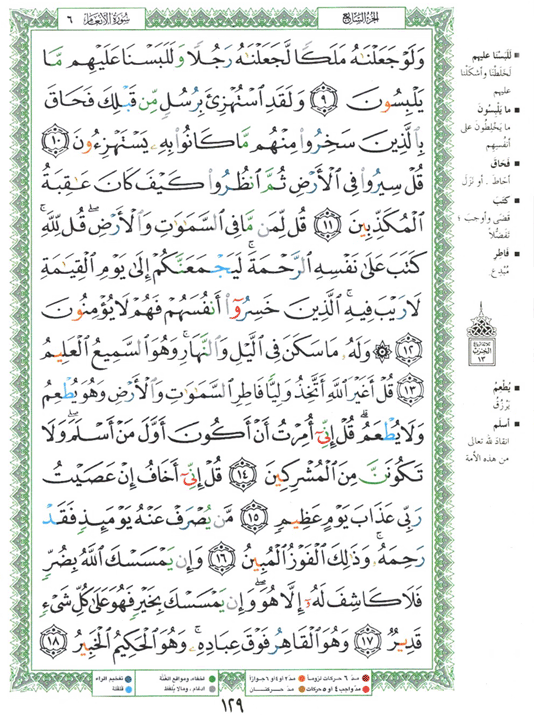 الجزء السابع
سورة الأنعام ٦
وَلَوْ جَعَلْنَٰهُ مَلَكًا لَّجَعَلْنَٰهُ رَجُلًا وَلَلَبَسْنَا عَلَيْهِم مَّا
يَلْبِسُونَ ٩ وَلَقَدِ ٱسْتُهْزِئَ بِرُسُلٍ مِّن قَبْلِكَ فَحَاقَ
بِٱلَّذِينَ سَخِرُوا۟ مِنْهُم مَّا كَانُوا۟ بِهِۦ يَسْتَهْزِءُونَ ١٠
قُلْ سِيرُوا۟ فِى ٱلْأَرْضِ ثُمَّ ٱنظُرُوا۟ كَيْفَ كَانَ عَٰقِبَةُ
ٱلْمُكَذِّبِينَ ١١ قُل لِّمَن مَّا فِى ٱلسَّمَٰوَٰتِ وَٱلْأَرْضِ ۖ قُل لِّلَّهِ ۚ
كَتَبَ عَلَىٰ نَفْسِهِ ٱلرَّحْمَةَ ۚ لَيَجْمَعَنَّكُمْ إِلَىٰ يَوْمِ ٱلْقِيَٰمَةِ
لَا رَيْبَ فِيهِ ۚ ٱلَّذِينَ خَسِرُوٓا۟ أَنفُسَهُمْ فَهُمْ لَا يُؤْمِنُونَ
١٢ ۞ وَلَهُۥ مَا سَكَنَ فِى ٱلَّيْلِ وَٱلنَّهَارِ ۚ وَهُوَ ٱلسَّمِيعُ ٱلْعَلِيمُ
١٣ قُلْ أَغَيْرَ ٱللَّهِ أَتَّخِذُ وَلِيًّا فَاطِرِ ٱلسَّمَٰوَٰتِ وَٱلْأَرْضِ وَهُوَ يُطْعِمُ
وَلَا يُطْعَمُ ۗ قُلْ إِنِّىٓ أُمِرْتُ أَنْ أَكُونَ أَوَّلَ مَنْ أَسْلَمَ ۖ وَلَا
تَكُونَنَّ مِنَ ٱلْمُشْرِكِينَ ١٤ قُلْ إِنِّىٓ أَخَافُ إِنْ عَصَيْتُ
رَبِّى عَذَابَ يَوْمٍ عَظِيمٍ ١٥ مَّن يُصْرَفْ عَنْهُ يَوْمَئِذٍ فَقَدْ
رَحِمَهُۥ ۚ وَذَٰلِكَ ٱلْفَوْزُ ٱلْمُبِينُ ١٦ وَإِن يَمْسَسْكَ ٱللَّهُ بِضُرٍّ
فَلَا كَاشِفَ لَهُۥٓ إِلَّا هُوَ ۖ وَإِن يَمْسَسْكَ بِخَيْرٍ فَهُوَ عَلَىٰ كُلِّ شَىْءٍ
قَدِيرٌ ١٧ وَهُوَ ٱلْقَاهِرُ فَوْقَ عِبَادِهِۦ ۚ وَهُوَ ٱلْحَكِيمُ ٱلْخَبِيرُ ١٨
■ لَلَبَسْنا عليهم
لَخَلَطْنا وأشكلْنا
عليهم
■ ما يَلْبِسُونَ
ما يَخْلِطُونَ على
أنفُسِهِم
■ فَحَاقَ
أحاطَ. أو نَزَلَ
■ كَتَبَ
قضَى وأوجبَ ؛
تفضُّلاً
■ فَاطِرِ
مُبْدِع
الحزب
١٣
■ يُطْعِمُ
يَرْزُقُ
■ أسلم
انقادَ لله تعالى
من هذه الأمة
مدّ ٦ حركات لزوماً
مدّ ٢ أو ٤ أو ٦ جوازاً
إخفاء، ومواقع الغُنَّة
تفخيم الراء
مدّ واجب ٤ أو ٥ حركات
مدّ حركتان
إدغام، وما لا يُلفظ
قلقلة
١٢٩